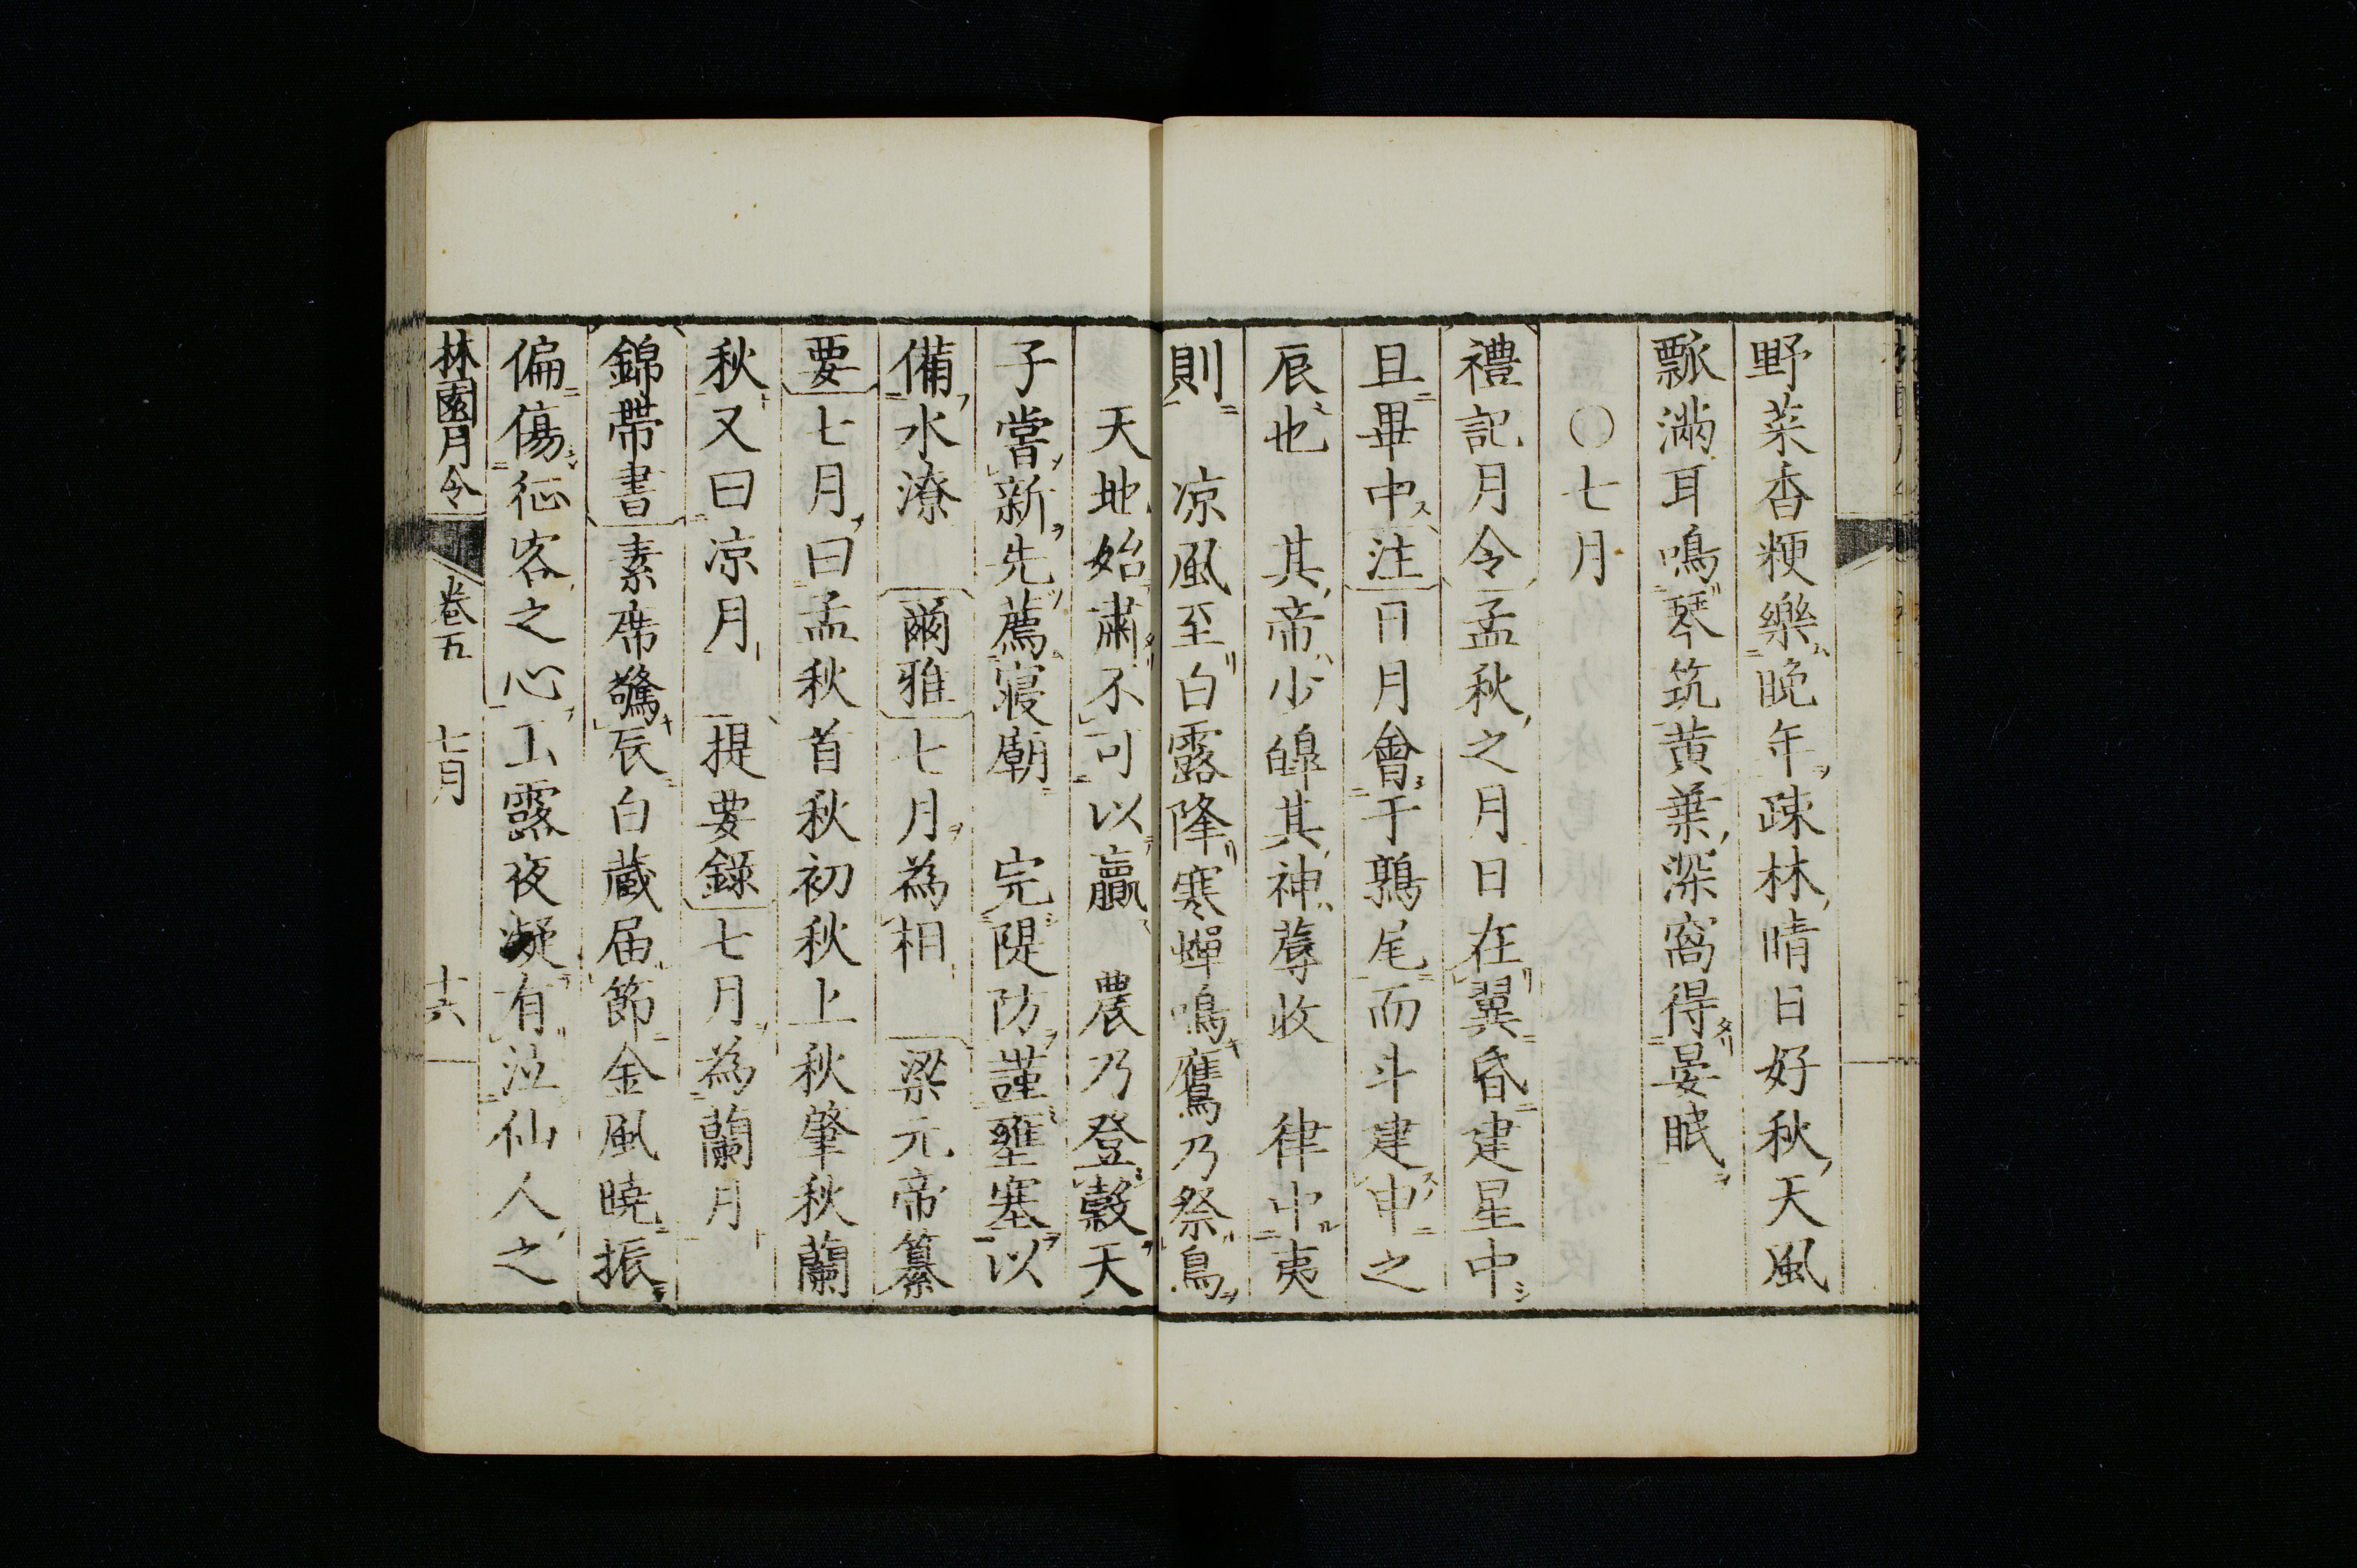 野菜香粳樂晩年疎林晴日好秋天風
瓢滿耳鳴琴筑黄葉深窩得晏眠
〇七月
禮記月令孟秋之月日在翼昏建星中
旦畢中注日月會于鶉尾而斗建申之
辰也　其帝少皥其神蓐收　律中夷
則　凉風至白露降寒蟬鳴鷹乃祭鳥
天地始肅不可以贏　農乃登穀天
子嘗新先薦寢廟　完隄防謹壅塞以
備水潦　爾雅七月為相　梁元帝纂
要七月曰孟秋首秋初秋上秋肇秋蘭
秋又曰凉月　提要録七月為蘭月
錦帶書素席驚辰白藏届節金風曉振
偏傷征客之心玉露夜凝有泣仙人之
林園月令　卷五　七月　十六